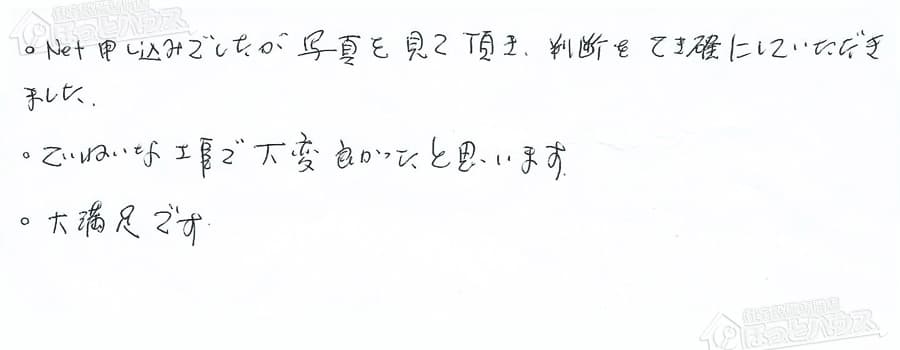 住宅設備専門店
ほっとハウス
。Net申し込みでしたが 写真を見て頂き、判断をてき確にしていただき
ました。
。ていねいな工事で大変良かったと思います。
。大満足です。
住宅設備専門店
ほっとハウス